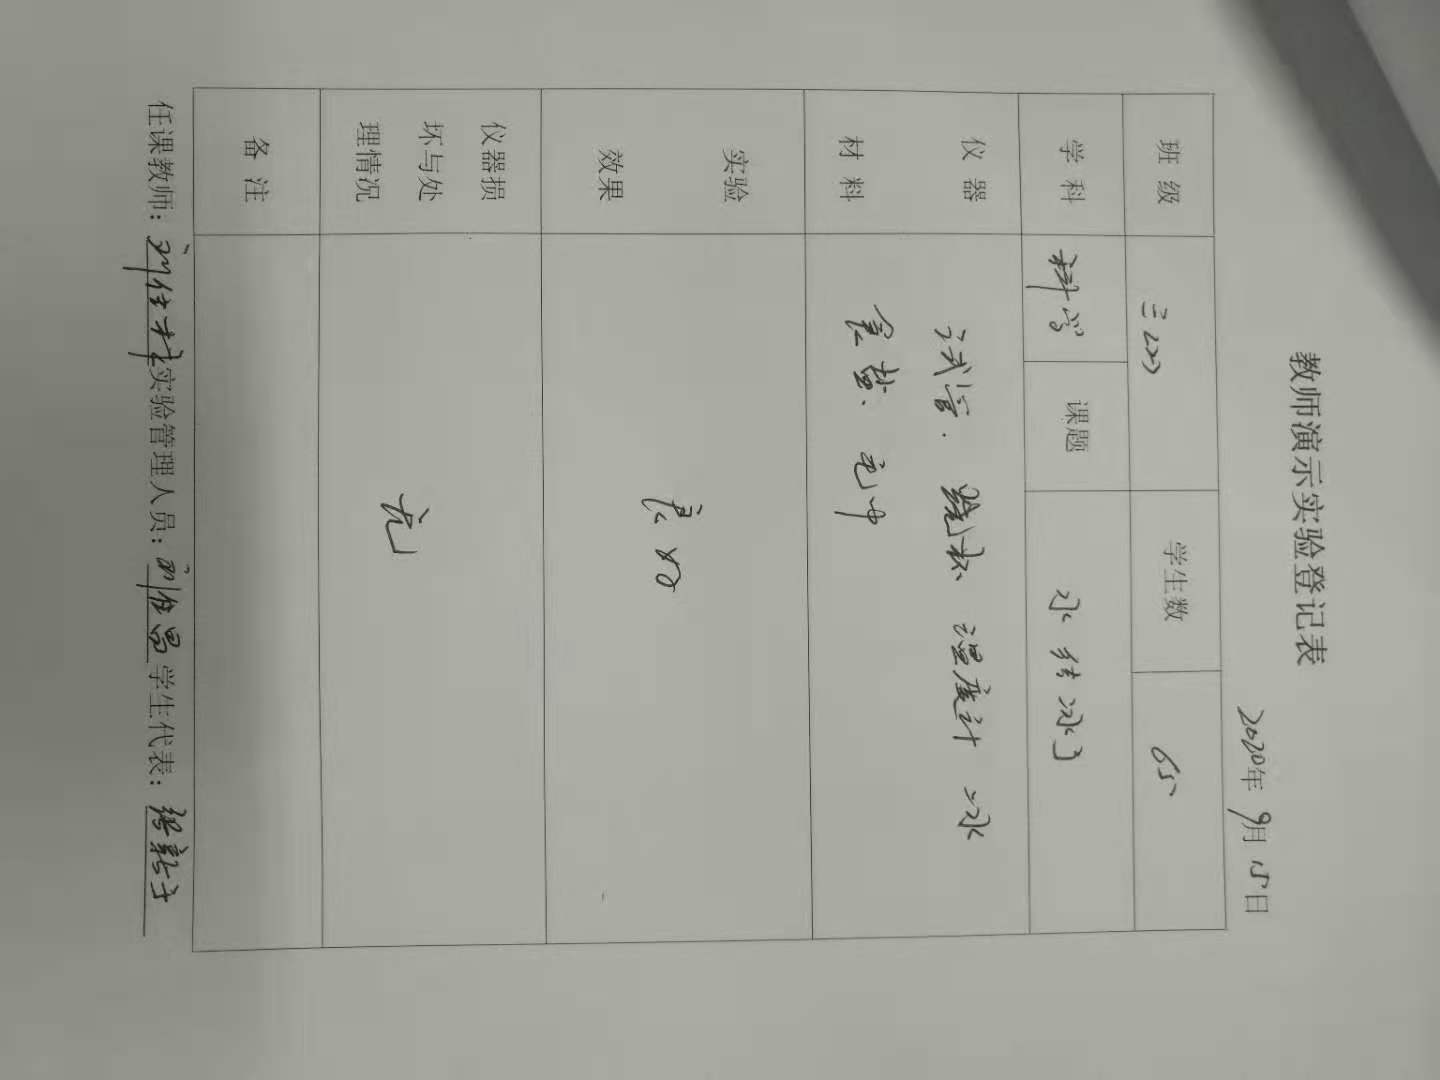 教师演示实验登记表
2020年9月15日
班级 三(2) 学生数 65
学科 科学 课题 水结冰了
仪器 试管. 烧杯 温度计 冰
材料 食盐、毛巾
实验
效果 良好
仪器损
坏与处
理情况 无
备注
任课教师： 实验管理人员： 学生代表：